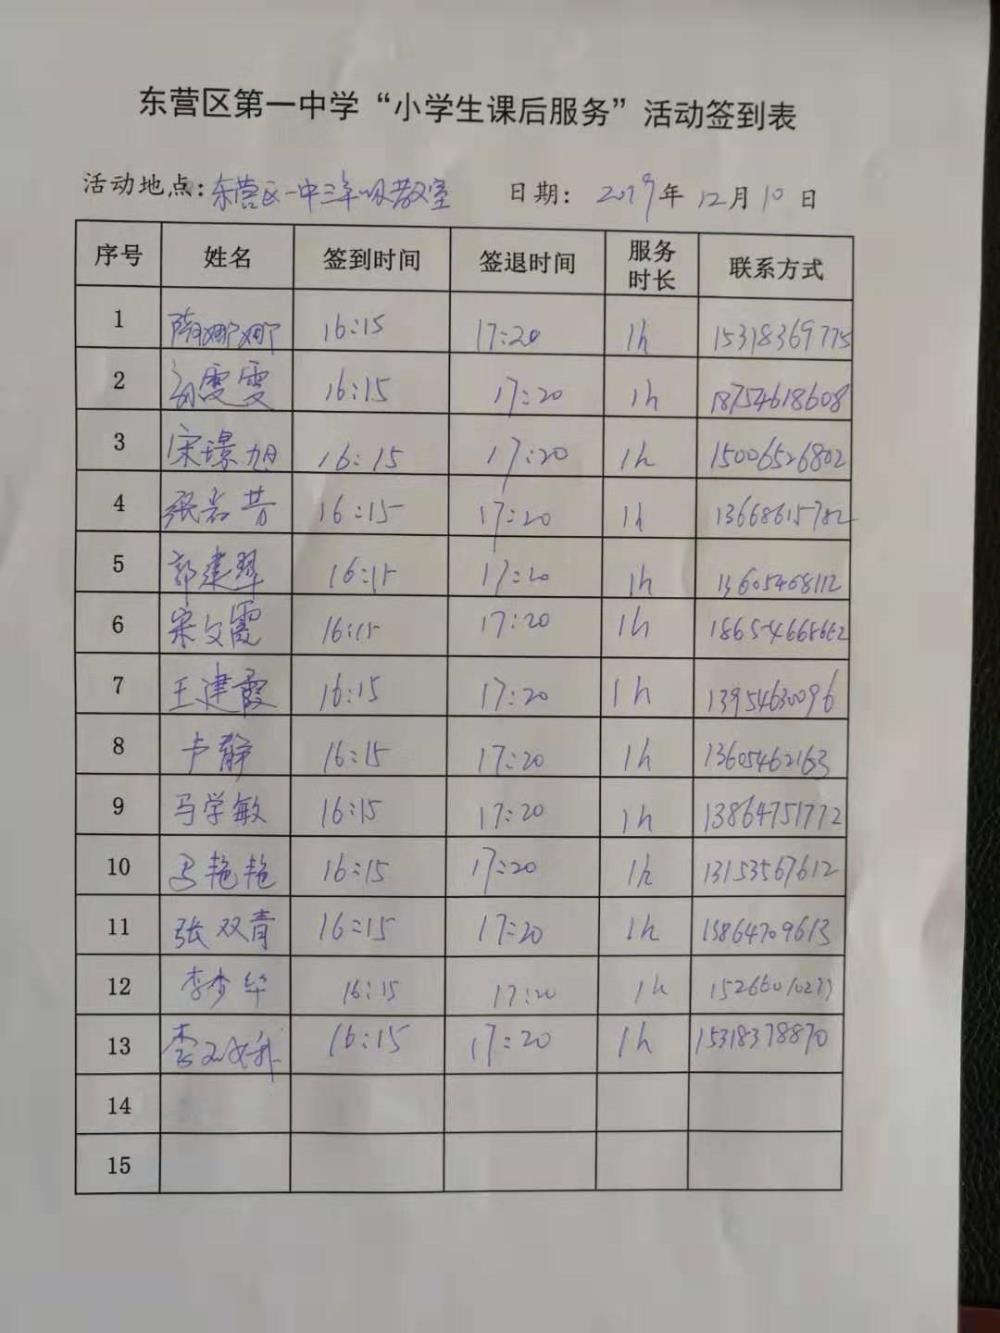 东营区第一中学“小学生课后服务”活动签到表
活动地点：东营区一中三年级教室 日期：2019年12月10日
序号 姓名 签到时间 签退时间 服务时长 联系方式
1 隋娜娜 16:15 17:20 1h 15318369775
2 雯雯 16:15 17:20 1h 18754618608
3 宋璟旭 16:15 17:20 1h 15006526802
4 张岩芳 16:15 17:20 1h 13668615782
5 郭建翠 16:15 17:20 1h 13605468112
6 宋文霞 16:15 17:20 1h
7 王建霞 16:15 17:20 1h 13954630096
8 卢静 16:15 17:20 1h 13605462163
9 马学敏 16:15 17:20 1h 13864751772
10 马艳艳 16:15 17:20 1h 13153567612
11 张双青 16:15 17:20 1h 13864709613
12 李梦华 16:15 17:20 1h
13 李 16:15 17:20 1h 15318378870
14
15